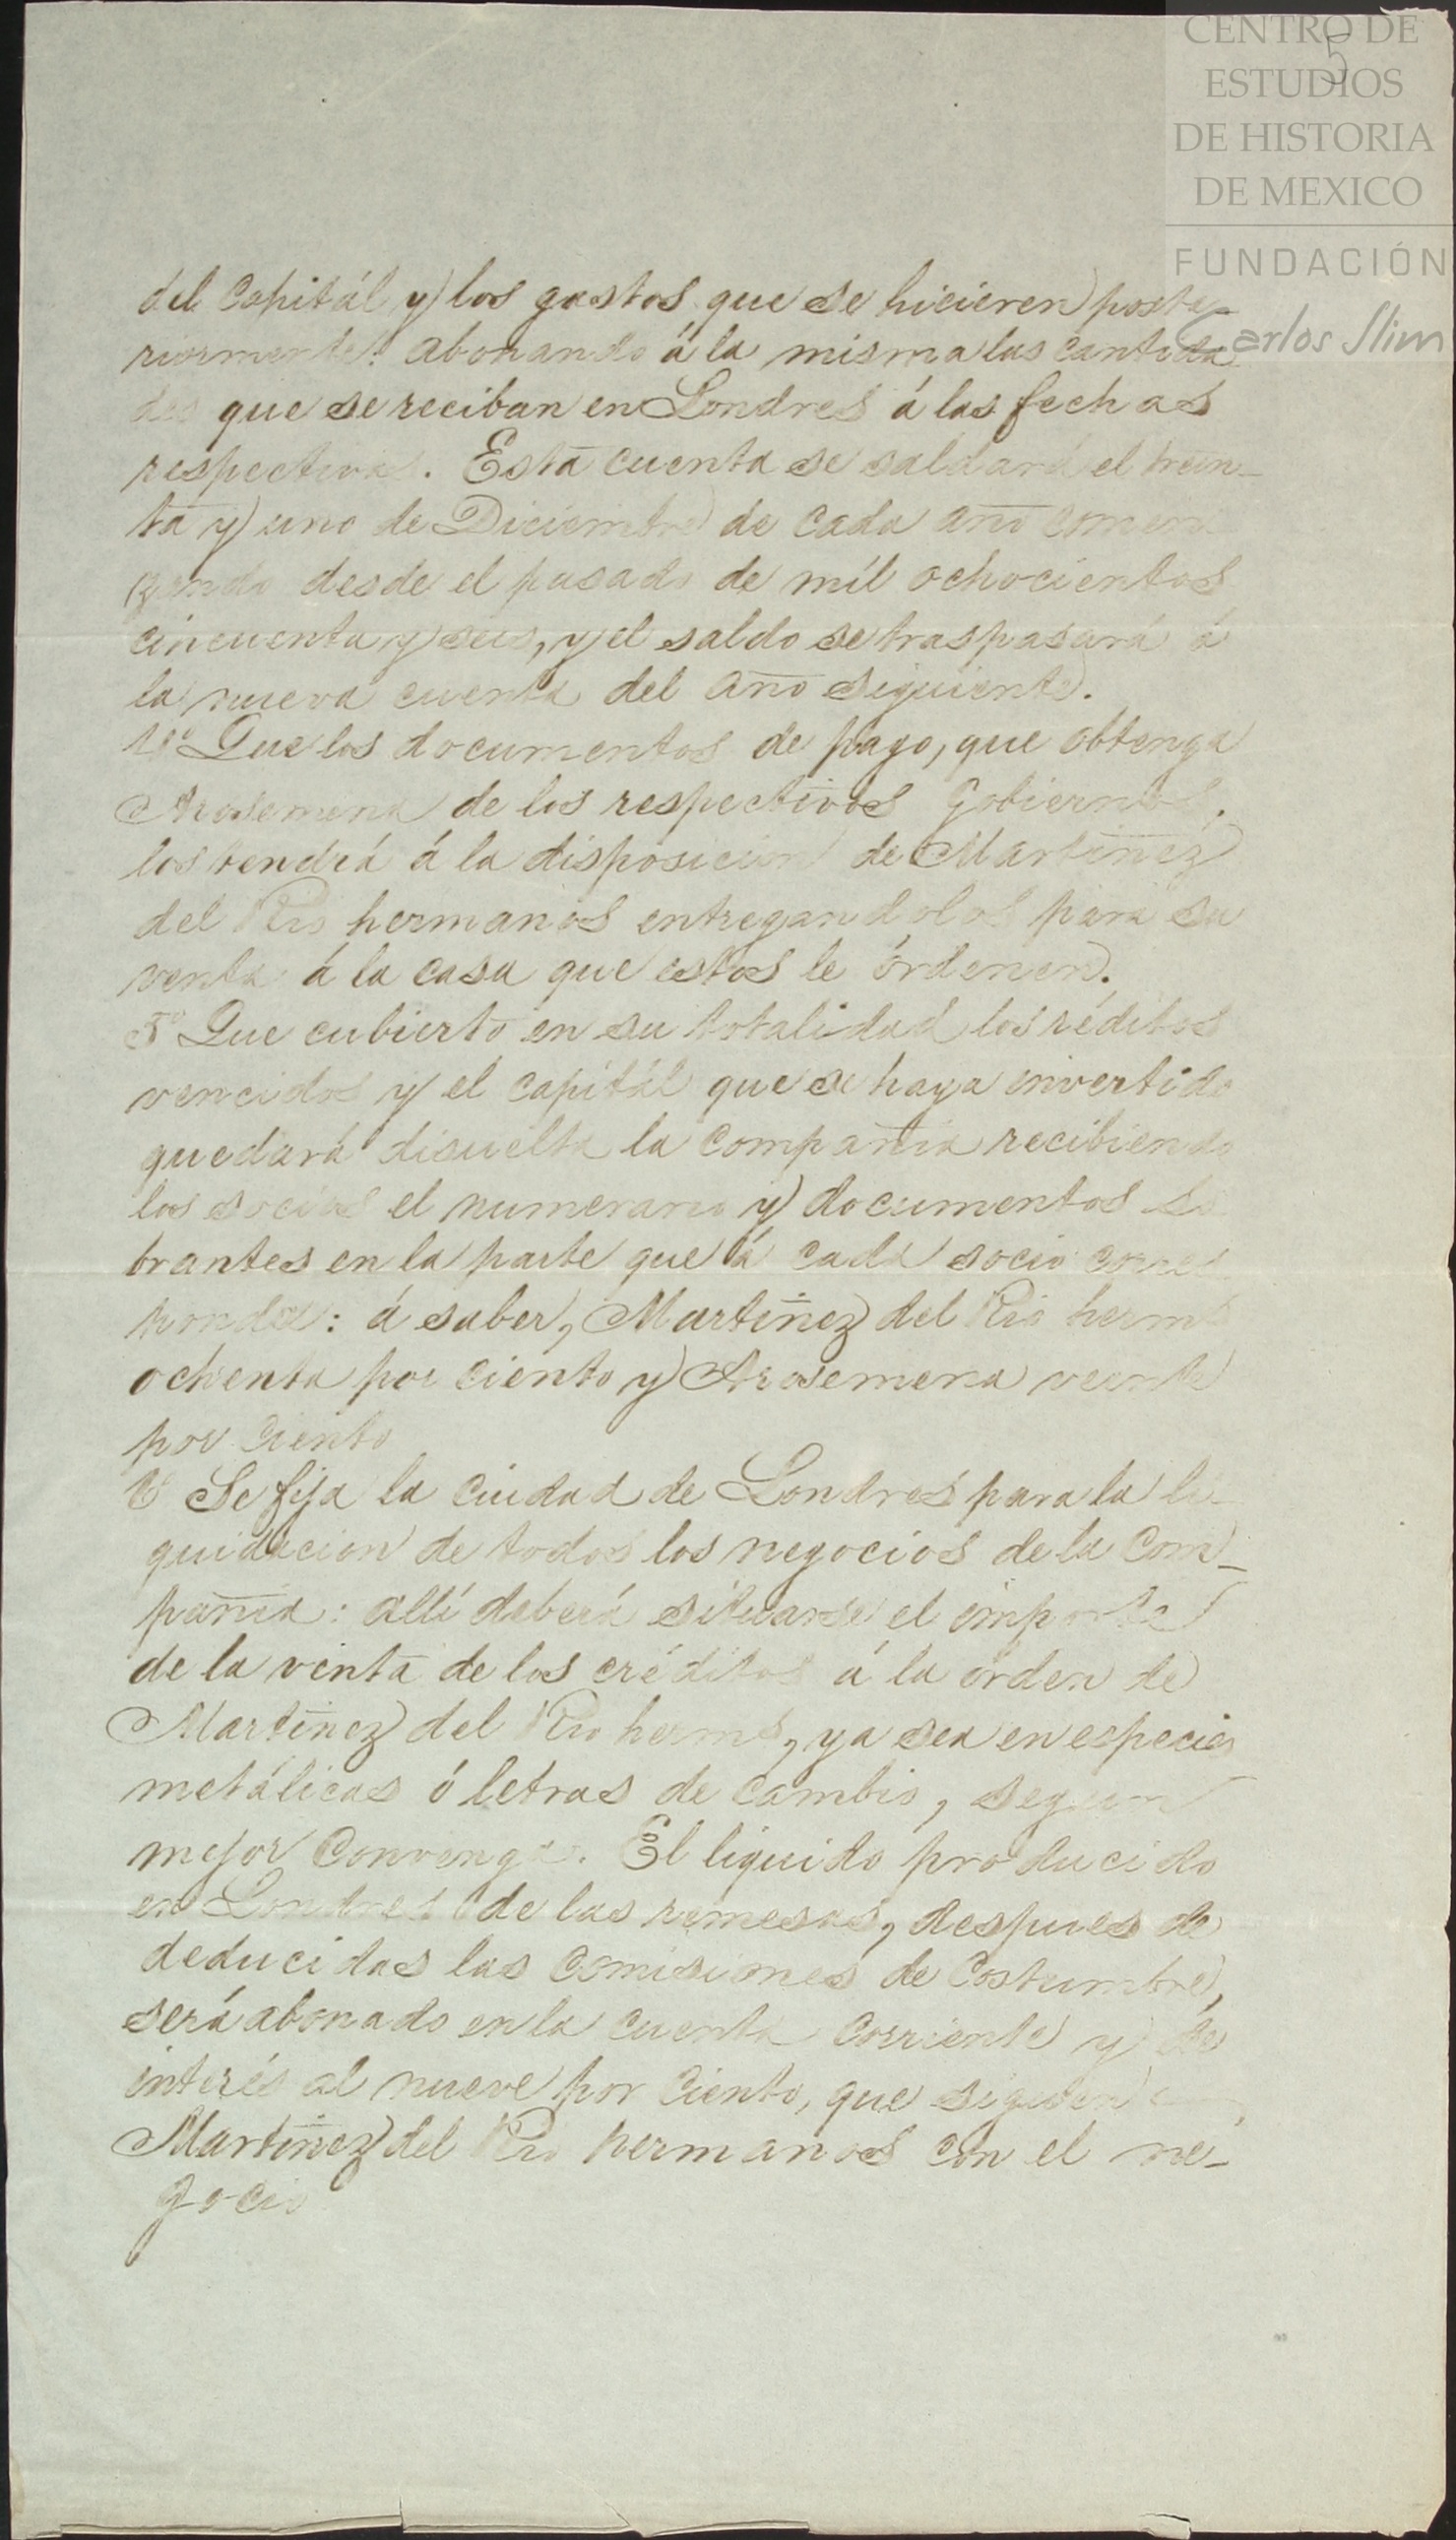 CENTRO DE
ESTUDIOS
DE HISTORIA
DE MEXICO
FUNDACIÓN
Carlos Slim
5
del Capitál y los gastos que se hicieren poste-
riormente: abonando á la misma las cantida
des que se reciban en Londres á las fechas
respectivas. Esta cuenta se saldará el trein-
ta y uno de Diciembre de cada año comen
zando desde el pasado de mil ochocientos
cincuenta y seis, y el saldo se traspasará á
la nueva cuenta del año siguiente.
4º Que los documentos de pago, que obtenga
Arosemena de los respectivos Gobiernos,
los tendrá á la disposicion de Martinez
del Rio hermanos entregandolos para su
venta á la casa que estos le órdenen.
5º Que cubierto en su totalidad los réditos
vencidos y el capitál que se haya invertido
quedará disuelta la compañia recibiendo
los socios el numerario y documentos so
brantes en la parte que á cada socio corres
ponde: á saber, Martinez del Rio herms
ochenta por ciento y Arosemena veinte
por ciento
6º Se fija la Ciudad de Londres para la li-
quidacion de todos los negocios de la Com-
pañia: allí deberá situarse el importe
de la venta de los créditos á la órden de
Martinez del Rio herms, ya sea en especies
metálicas ó letras de cambio, segun
mejor convenga. El liquido producido
en Londres de las remesas, despues de
deducidas las comisiones de Costumbre,
será abonado en la cuenta corriente y de
interés al nueve por ciento, que siguen
Martinez del Rio hermanos con el ne-
gocio